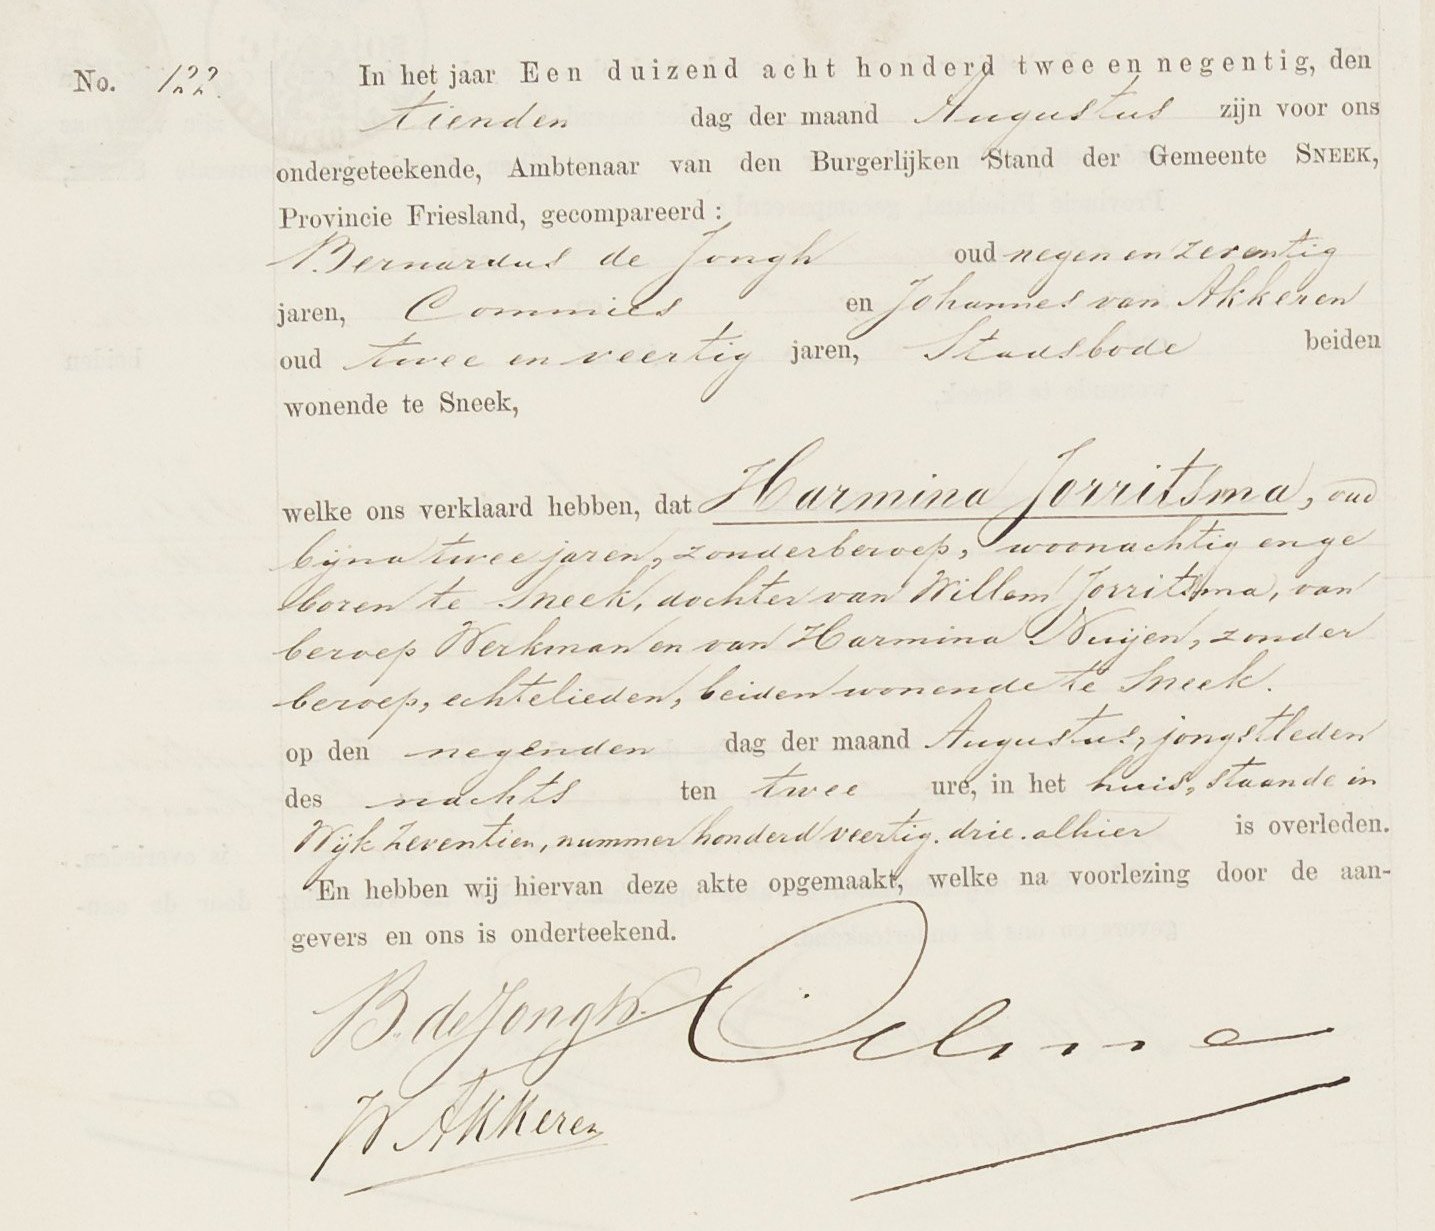 No. 122. In het jaar Een duizend acht honderd twee en negentig, den
tienden dag der maand Augustus zijn voor ons
ondergeteekende, Ambtenaar van den Burgerlijken Stand der Gemeente SNEEK,
Provincie Friesland, gecompareerd :
Bernardus de Jongh oud negen en zeventig
jaren, Commies en Johannes van Akkeren
oud twee en veertig jaren, Stadsbode beiden
wonende te Sneek,
welke ons verklaard hebben, dat Harmina Jorritsma, oud
bijna twee jaren, zonder beroep, woonachtig en ge
boren te Sneek, dochter van Willem Jorritsma, van
beroep Werkman en van Harmina Nuijen, zonder
beroep, echtelieden, beiden wonende te Sneek.
op den negenden dag der maand Augustus, jongstleden
des nachts ten twee ure, in het huis, staande in
Wijk zeventien, nummer honderd veertig.drie.alhier is overleden.
En hebben wij hiervan deze akte opgemaakt, welke na voorlezing door de aan-
gevers en ons is onderteekend.
B. de Jongh.
Akkeren